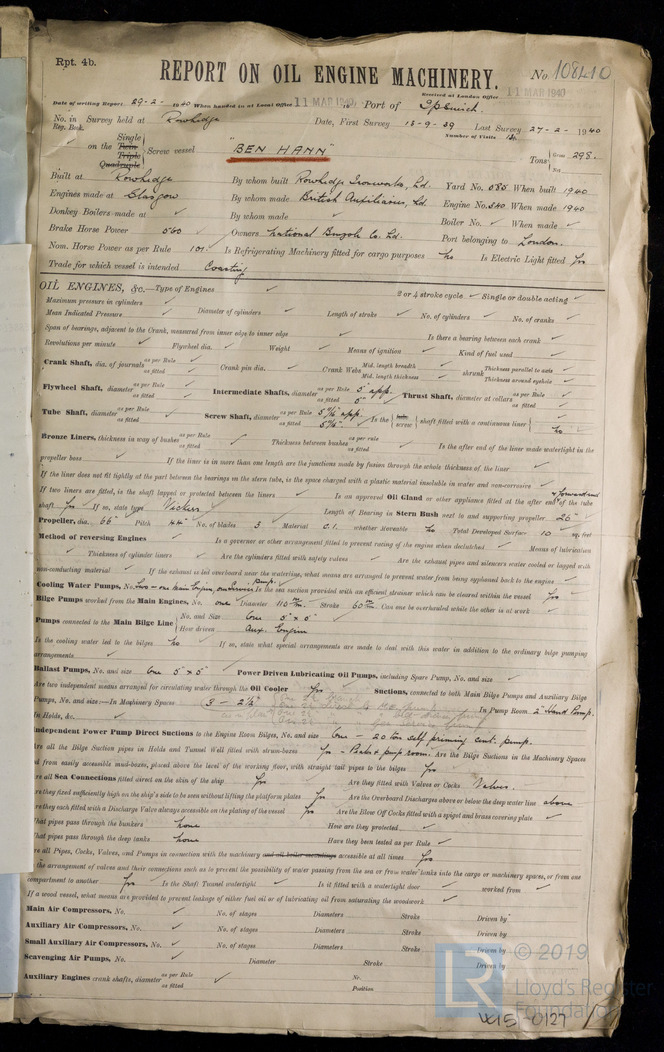 Rpt. 4b.
REPORT ON OIL ENGINE MACHINERY.
No. 108410
Received at London Office 11 MAR 1940
Date of writing Report 29-2- 1940 When handed in at Local Office 11 MAR 1940 Port of Ipswich.
No. in Survey held at Rowhedge Date, First Survey 18-9-39 Last Survey 27-2-1940
Reg. Book. Number of Visits
Single
on the Twin Screw vessel "BEN HANN" Tons Gross 298.
Triple Net
Quadruple
Built at Rowhedge By whom built Rowhedge Ironworks, Ld. Yard No. 585 When built 1940
Engines made at Glasgow By whom made British Auxiliaries, Ld. Engine No. When made 1940
Donkey Boilers made at ✓ By whom made ✓ Boiler No. ✓ When made ✓
Brake Horse Power 560 Owners National Benzole Co. Ld. Port belonging to London.
Nom. Horse Power as per Rule 101 Is Refrigerating Machinery fitted for cargo purposes No Is Electric Light fitted Yes
Trade for which vessel is intended Coasting
OIL ENGINES, &c.—Type of Engines ✓ 2 or 4 stroke cycle ✓ Single or double acting ✓
Maximum pressure in cylinders ✓ Diameter of cylinders ✓ Length of stroke ✓ No. of cylinders ✓ No. of cranks ✓
Mean Indicated Pressure ✓
Span of bearings, adjacent to the Crank, measured from inner edge to inner edge ✓ Is there a bearing between each crank ✓
Revolutions per minute ✓ Flywheel dia. ✓ Weight ✓ Means of ignition ✓ Kind of fuel used ✓
Crank Shaft, dia. of journals as per Rule as fitted ✓ Crank pin dia. ✓ Crank Webs Mid. length breadth Mid. length thickness ✓ shrunk Thickness parallel to axis Thickness around eyehole ✓
Flywheel Shaft, diameter as per Rule as fitted ✓ Intermediate Shafts, diameter as per Rule 5" app. as fitted 5" Thrust Shaft, diameter at collars as per Rule as fitted ✓
Tube Shaft, diameter as per Rule as fitted ✓ Screw Shaft, diameter as per Rule 5 11/16" app. as fitted 5 11/16" Is the tube screw shaft fitted with a continuous liner No
Bronze Liners, thickness in way of bushes as per Rule as fitted ✓ Thickness between bushes as per rule as fitted ✓ Is the after end of the liner made watertight in the
propeller boss ✓ If the liner is in more than one length are the junctions made by fusion through the whole thickness of the liner ✓
If the liner does not fit tightly at the part between the bearings on the stern tube, is the space charged with a plastic material insoluble in water and non-corrosive ✓
If two liners are fitted, is the shaft lapped or protected between the liners ✓ Is an approved Oil Gland or other appliance fitted at the after end & forward end of the tube
shaft Yes If so, state type Vickers Length of Bearing in Stern Bush next to and supporting propeller 26"
Propeller, dia. 66" Pitch 44" No. of blades 3 Material C.I. whether Moveable No Total Developed Surface 10 sq. feet
Method of reversing Engines ✓ Is a governor or other arrangement fitted to prevent racing of the engine when declutched ✓ Means of lubrication
✓ Thickness of cylinder liners ✓ Are the cylinders fitted with safety valves ✓ Are the exhaust pipes and silencers water cooled or lagged with
non-conducting material ✓ If the exhaust is led overboard near the waterline, what means are arranged to prevent water from being syphoned back to the engine ✓
Cooling Water Pumps, No. Two - one Main Engine, one Service Pump. Is the sea suction provided with an efficient strainer which can be cleared within the vessel Yes
Bilge Pumps worked from the Main Engines, No. one Diameter 110 m/m. Stroke 60 m/m. Can one be overhauled while the other is at work ✓
Pumps connected to the Main Bilge Line No. and Size One 5" x 5"
How driven Aux. Engine
Is the cooling water led to the bilges No. If so, state what special arrangements are made to deal with this water in addition to the ordinary bilge pumping
arrangements ✓
Ballast Pumps, No. and size One 5" x 5" Power Driven Lubricating Oil Pumps, including Spare Pump, No. and size ✓
Are two independent means arranged for circulating water through the Oil Cooler Yes Suctions, connected to both Main Bilge Pumps and Auxiliary Bilge
Pumps, No. and size:—In Machinery Spaces 3 - 2½" In Pump Room 2" Hand Pump.
In Holds, &c. ✓
Independent Power Pump Direct Suctions to the Engine Room Bilges, No. and size One - 20 ton self priming cent. pump.
Are all the Bilge Suction pipes in Holds and Tunnel Well fitted with strum-boxes Yes - Peaks & pump room. Are the Bilge Suctions in the Machinery Spaces
led from easily accessible mud-boxes, placed above the level of the working floor, with straight tail pipes to the bilges Yes
Are all Sea Connections fitted direct on the skin of the ship Yes Are they fitted with Valves or Cocks Valves.
Are they fixed sufficiently high on the ship's side to be seen without lifting the platform plates Yes Are the Overboard Discharges above or below the deep water line above
Are they each fitted with a Discharge Valve always accessible on the plating of the vessel Yes Are the Blow Off Cocks fitted with a spigot and brass covering plate ✓
What pipes pass through the bunkers None How are they protected ✓
What pipes pass through the deep tanks None Have they been tested as per Rule ✓
Are all Pipes, Cocks, Valves, and Pumps in connection with the machinery and oil boiler mountings accessible at all times Yes
Is the arrangement of valves and their connections such as to prevent the possibility of water passing from the sea or from water tanks into the cargo or machinery spaces, or from one
compartment to another Yes Is the Shaft Tunnel watertight ✓ Is it fitted with a watertight door ✓ worked from ✓
If a wood vessel, what means are provided to prevent leakage of either fuel oil or lubricating oil from saturating the woodwork ✓
Main Air Compressors, No. ✓ No. of stages Diameters Stroke Driven by
Auxiliary Air Compressors, No. ✓ No. of stages Diameters Stroke Driven by
Small Auxiliary Air Compressors, No. ✓ No. of stages Diameters Stroke Driven by
Scavenging Air Pumps, No. ✓ Diameter Stroke Driven by
Auxiliary Engines crank shafts, diameter as per Rule as fitted ✓ No. Position
LR © 2019
Lloyd's Register
Foundation
W151-0127